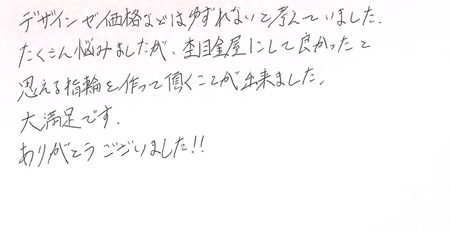 デザインや価格などはゆずれないと考えていました.
たくさん悩みましたが、杢目金屋にして良かったと
思える指輪を作って頂くことが出来ました.
大満足です.
ありがとうございました!!